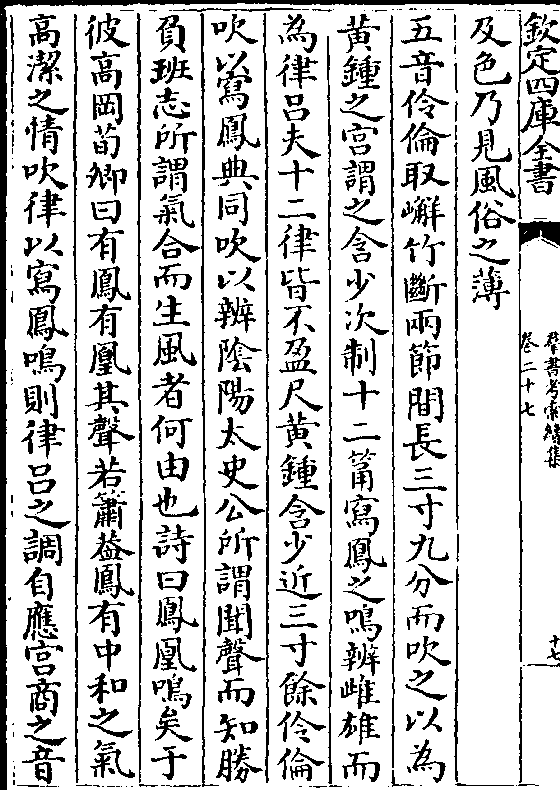 欽定四庫全書
羣書考索續集
卷二十七
十七
及色乃見風俗之薄
五音伶倫取嶰竹斷兩節間長三寸九分而吹之以為
黃鍾之宮謂之含少次制十二筩寫鳳之鳴辨雌雄而
為律呂夫十二律皆不盈尺黃鍾含少近三寸餘伶倫
吹以寫鳳典同吹以辨陰陽太史公所謂聞聲而知勝
負班志所謂氣合而生風者何由也詩曰鳳凰鳴矣于
彼高岡荀卿曰有鳳有凰其聲若簫葢鳳有中和之氣
高潔之情吹律以寫鳳鳴則律呂之調自應宮商之音